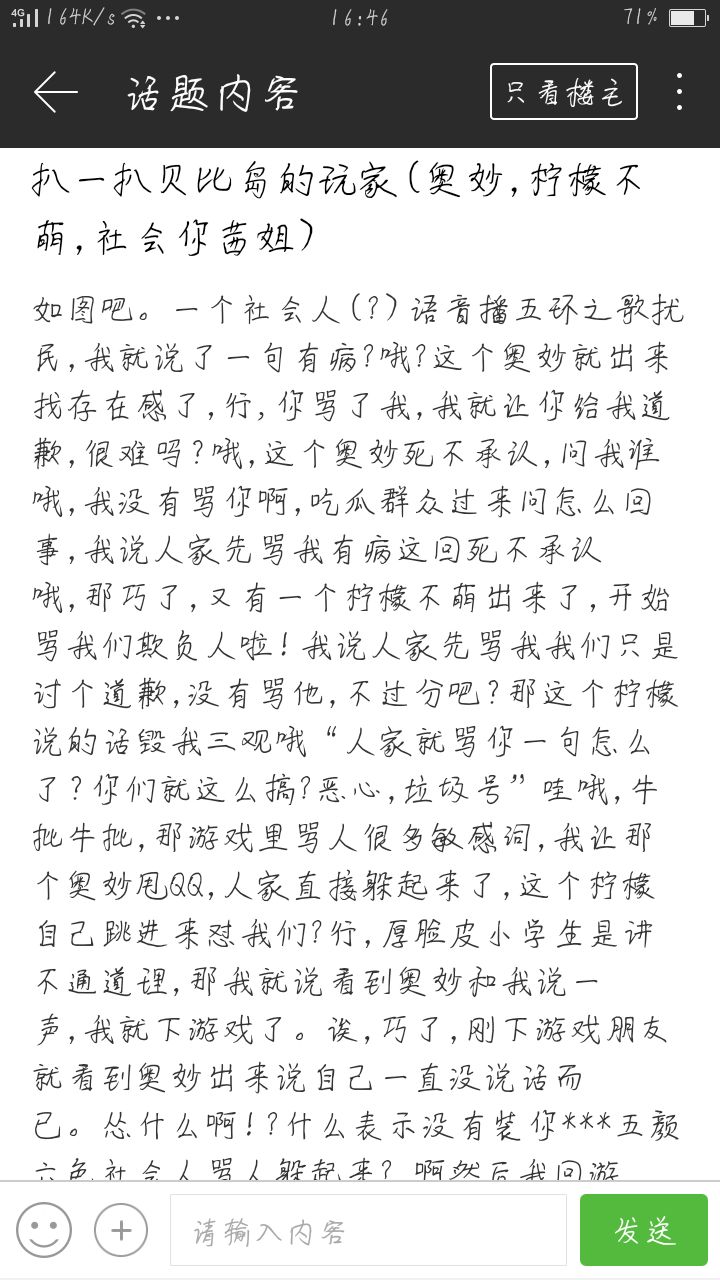 4G 164K/s 16:46 71%
话题内容 只看楼主
扒一扒贝比岛的玩家(奥妙,柠檬不
萌,社会你茜姐)
如图吧。一个社会人(?)语音播五环之歌扰
民,我就说了一句有病?哦?这个奥妙就出来
找存在感了,行,你骂了我,我就让你给我道
歉,很难吗?哦,这个奥妙死不承认,问我谁
哦,我没有骂你啊,吃瓜群众过来问怎么回
事,我说人家先骂我有病这回死不承认
哦,那巧了,又有一个柠檬不萌出来了,开始
骂我们欺负人啦!我说人家先骂我我们只是
讨个道歉,没有骂他,不过分吧?那这个柠檬
说的话毁我三观哦“人家就骂你一句怎么
了?你们就这么搞?恶心,垃圾号”哇哦,牛
批牛批,那游戏里骂人很多敏感词,我让那
个奥妙甩QQ,人家直接躲起来了,这个柠檬
自己跳进来怼我们?行,厚脸皮小学生是讲
不通道理,那我就说看到奥妙和我说一
声,我就下游戏了。诶,巧了,刚下游戏朋友
就看到奥妙出来说自己一直没说话而
已。怂什么啊!?什么表示没有装你***五颜
六色社会人骂人躲起来?啊然后我回游
请输入内容 发送